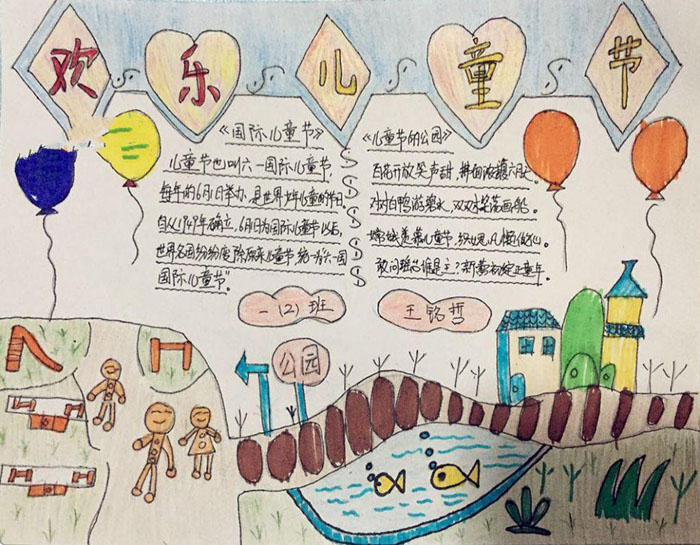 欢乐儿童节
《国际儿童节》
儿童节也叫六一国际儿童节,
每年的6月1日举办,是世界少年儿童的节日,
自从1949年确立,6月1日为国际儿童节以后,
世界各国纷纷废除原来儿童节统一为"六一国
国际儿童节"。
《儿童节的公园》
百花开放笑声甜,
六月天。
对对白鸭游碧水,双双
画船。
嫦娥羡慕儿童节,织女思凡
敢问
谁是主?新蕾初绽正童年。
一(2)班
王铭哲
公园